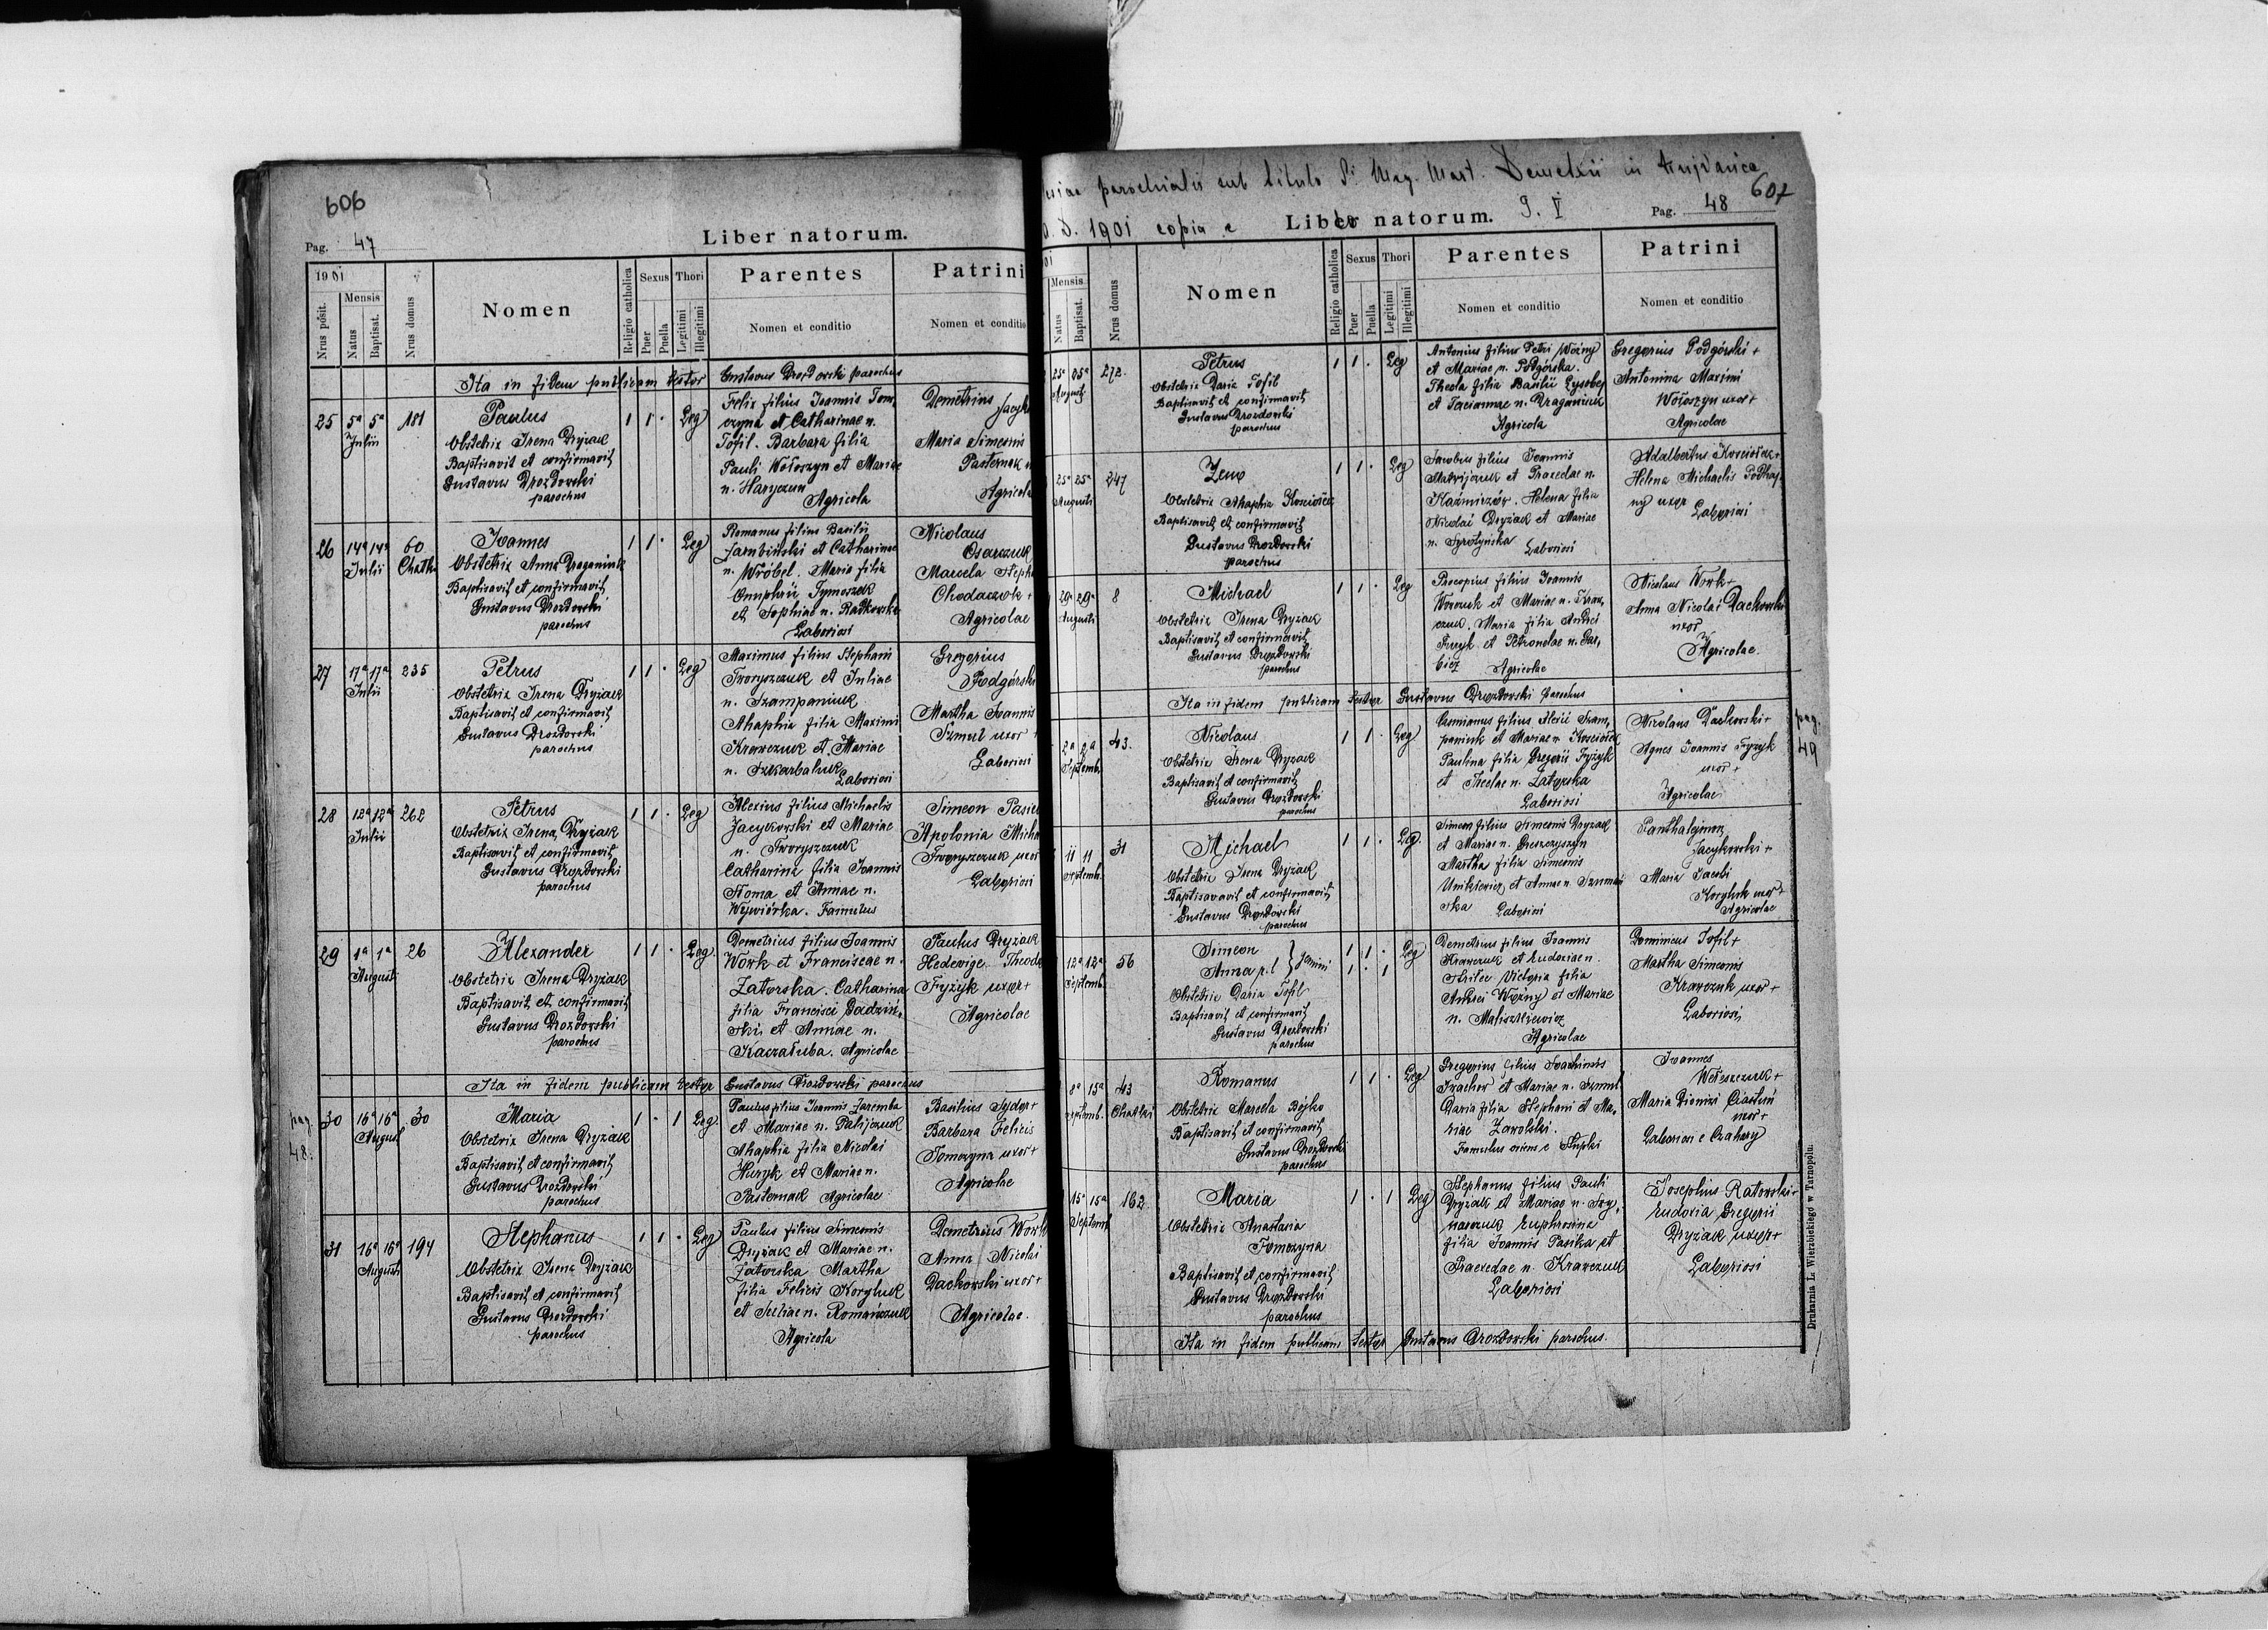 606
Pag. 47
Liber natorum.
1901
Nrus posit.
Mensis
Natus
Baptisat.
Nrus domus
Nomen
Religio catholica
Sexus
Puer
Puella
Thori
Legitimi
Illegitimi
Parentes
Nomen et conditio
Patrini
Nomen et conditio
Ita in fidem publicam testor Gustavus Drozdowski parochus
25 5ª 5ª Julii 181
Paulus
Obstetrix Irena Dryżak
Baptisavit et confirmavit
Gustavus Drozdowski
parochus
1 1 · Leg
Felix filius Joannis Tom,
czyna et Catharinae n.
Tofil. Barbara filia
Pauli Wołoszyn et Mariae
n. Haryczun
Agricola
Demetrius
Maria Simeonis
Pasternak
Agricola
26 14ª 14ª Julii 60
Joannes
Obstetrix Anna Draganiuk
Baptisavit et confirmavit
Gustavus Drozdowski
parochus
1 1 · Leg
Romanus filius Basilii
Zambiński et Catharinae
n. Wróbel. Maria filia
Onuphrii Tymoszek
et Sophiae n. Radkowska
Laboriosi
Nicolaus
Osarczuk
Marcela Steph
Chodaczok +
Agricolae
27 17ª 17ª Julii 235
Petrus
Obstetrix Irena Dryżak
Baptisavit et confirmavit
Gustavus Drozdowski
parochus
1 1 · Leg
Maximus filius Stephani
Tworyszczuk et Juliae
n. Szampaniuk
Ahaphia filia Maximi
Krawczuk et Mariae
n. Szkarbaluk
Laboriosi
Gregorius
Podgórski
Martha Joannis
Szmul uxor +
Laboriosi
28 12ª 12ª Julii 262
Petrus
Obstetrix Irena Dryżak
Baptisavit et confirmavit
Gustavus Drozdowski
parochus
1 1 · Leg
Alexius filius Michaelis
Jacykowski et Mariae
n. Tworyszczuk
Catharina filia Joannis
Stoma et Annae n.
Wywiórka. Famulus
Simeon
Apolonia Micha
Tworyszczuk uxor
Laboriosi
29 1ª 1ª Augusti 26
Alexander
Obstetrix Irena Dryżak
Baptisavit et confirmavit
Gustavus Drozdowski
parochus
1 1 · Leg.
Demetrius filius Joannis
Work et Franciscae n.
Zatorska. Catharina
filia Francisci Dadziń,
ski et Annae n.
Kaczałuba. Agricolae
Paulus Dryżak
Hedevige Theodo
Fryżyk uxor +
Agricolae
Ita in fidem publicam testor Gustavus Drozdowski parochus
pag.
48.
30 16ª 16ª August 30
Maria
Obstetrix Irena Dryżak
Baptisavit et confirmavit
Gustavus Drozdowski
parochus
1 · 1 Leg.
Paulus filius Joannis Zaremba
et Mariae n. Palijczuk
Ahaphia filia Nicolai
Huryk et Mariae n.
Pasternak Agricolae
Basilius Sydor +
Barbara Felicis
Tomczyna uxor +
Agricolae
31 16ª 16ª Augusti 194
Stephanus
Obstetrix Irena Dryżak
Baptisavit et confirmavit
Gustavus Drozdowski
parochus
1 1 · Leg
Paulus filius Simeonis
Dryżak et Mariae n.
Zatorska Martha
filia Felicis Koryluk
et Juliae n. Romańczuk
Agricola
Demetrius Work
Anna Nicolai
Dackowski uxor +
Agricolae.
parochialis sub titulo St. Mag. Mart. Demetrii in
607
D. 1901 copia e Libro natorum. S. V
Pag. 48
Mensis
Natus
Baptisat.
Nrus domus
Nomen
Religio catholica
Sexus
Puer
Puella
Thori
Legitimi
Illegitimi
Parentes
Nomen et conditio
Patrini
Nomen et conditio
25ª 25ª Augusti 272.
Petrus
Obstetrix Daria Tofil
Baptisavit et confirmavit
Gustavus Drozdowski
parochus
1 1 · Leg
Antonius filius Petri Woźny
et Mariae n. Podgórska.
Thecla filia Basilii Łysobej
et Tacianae n. Draganiuk
Agricola
Gregorius Podgórski +
Antonina Maximi
Wołoszyn uxor +
Agricolae
25ª 25ª Augusti 247
Zeno
Obstetrix Ahaphia Kosciołek
Baptisavit et confirmavit
Gustavus Drozdowski
parochus
1 1 · Leg
Jacobus filius Joannis
Matwijczuk et Praxedae n.
Kaźmirzów. Helena filia
Nicolai Dryżak et Mariae
n. Syrotyńska
Laboriosi
Adalbertus Kosciołek +
Helena Michaelis Podhaj,
ny uxor
Laboriosi
29ª 29ª Augusti 8
Michael
Obstetrix Irena Dryżak
Baptisavit et confirmavit
Gustavus Drozdowski
parochus
1 1 · Leg
Procopius filius Joannis
Worczuk et Mariae n. Kraw,
czuk. Maria filia Andrei
Furyk et Petronelae n. Gar,
bicz Agricolae
Nicolaus Work +
Anna Nicolai Dackowski
uxor
Agricolae.
Ita in fidem publicam testor Gustavus Drozdowski parochus
pag.
49
2ª 2ª Septemb. 43.
Nicolaus
Obstetrix Irena Dryżak
Baptisavit et confirmavit
Gustavus Drozdowski
parochus
1 1 · Leg
Damianus filius Alexii Szam,
paniuk et Mariae n. Kosciołek
Paulina filia Gregorii Fyżyk
et Theclae n. Zatorska
Laboriosi
Nicolaus Dackowski +
Agnes Joannis Fyżyk
uxor +
Agricolae
11 11 Septemb. 31
Michael
Obstetrix Irena Dryżak
Baptisavit et confirmavit
Gustavus Drozdowski
parochus
1 1 · Leg.
Simeon filius Simeonis Dryżak
et Mariae n. Preszczyszyn
Martha filia Simeonis
Unikiewicz et Annae n. Szuman
ska Laboriosi
Panthalejmon
Jacykowski +
Maria Jacobi
Koryluk uxor +
Agricolae
12ª 12ª Septemb. 56
Simeon
Anna r.l } gemini
Obstetrix Daria Tofil
Baptisavit et confirmavit
Gustavus Drozdowski
parochus
1 1 ·
1 · 1
Leg
Demetrius filius Joannis
Krawczuk et Eudoxiae n.
Victoria filia
Andrei Woźny et Mariae
n. Matiszkiewicz
Agricolae
Dominicus Tofil +
Martha Simeonis
Krawczuk uxor +
Laboriosi,
8ª 15ª Septemb. 43 Chatki
Romanus
Obstetrix Marcela Bojko
Baptisavit et confirmavit
Gustavus Drozdowski
parochus
1 1 · Leg.
Gregorius filius Joachimis
et Mariae n. Szmul
Daria filia Stephani et Ma,
riae Zawolski.
Famulus oriem e Stupki
Joannes
Wołoszczuk +
Maria Dionizi Ciastoń
uxor +
Laboriosi e Czahary
15ª 15ª Septemb 162
Maria
Obstetrix Anastasia
Tomczyna
Baptisavit et confirmavit
Gustavus Drozdowski
parochus
1 · 1 Leg
Stephanus filius Pauli
Dryżak et Mariae n. Szy,
maczuk Euphrosina
filia Joannis Pasika et
Praxedae n. Krawczuk
Laboriosi
Josephus Ratowski +
Eudoxia Gregorii
Dryżak uxor +
Laboriosi
Ita in fidem publicam testor Gustavus Drozdowski parochus.
Drukarnia L. Wierzbickiego w Tarnopolu.